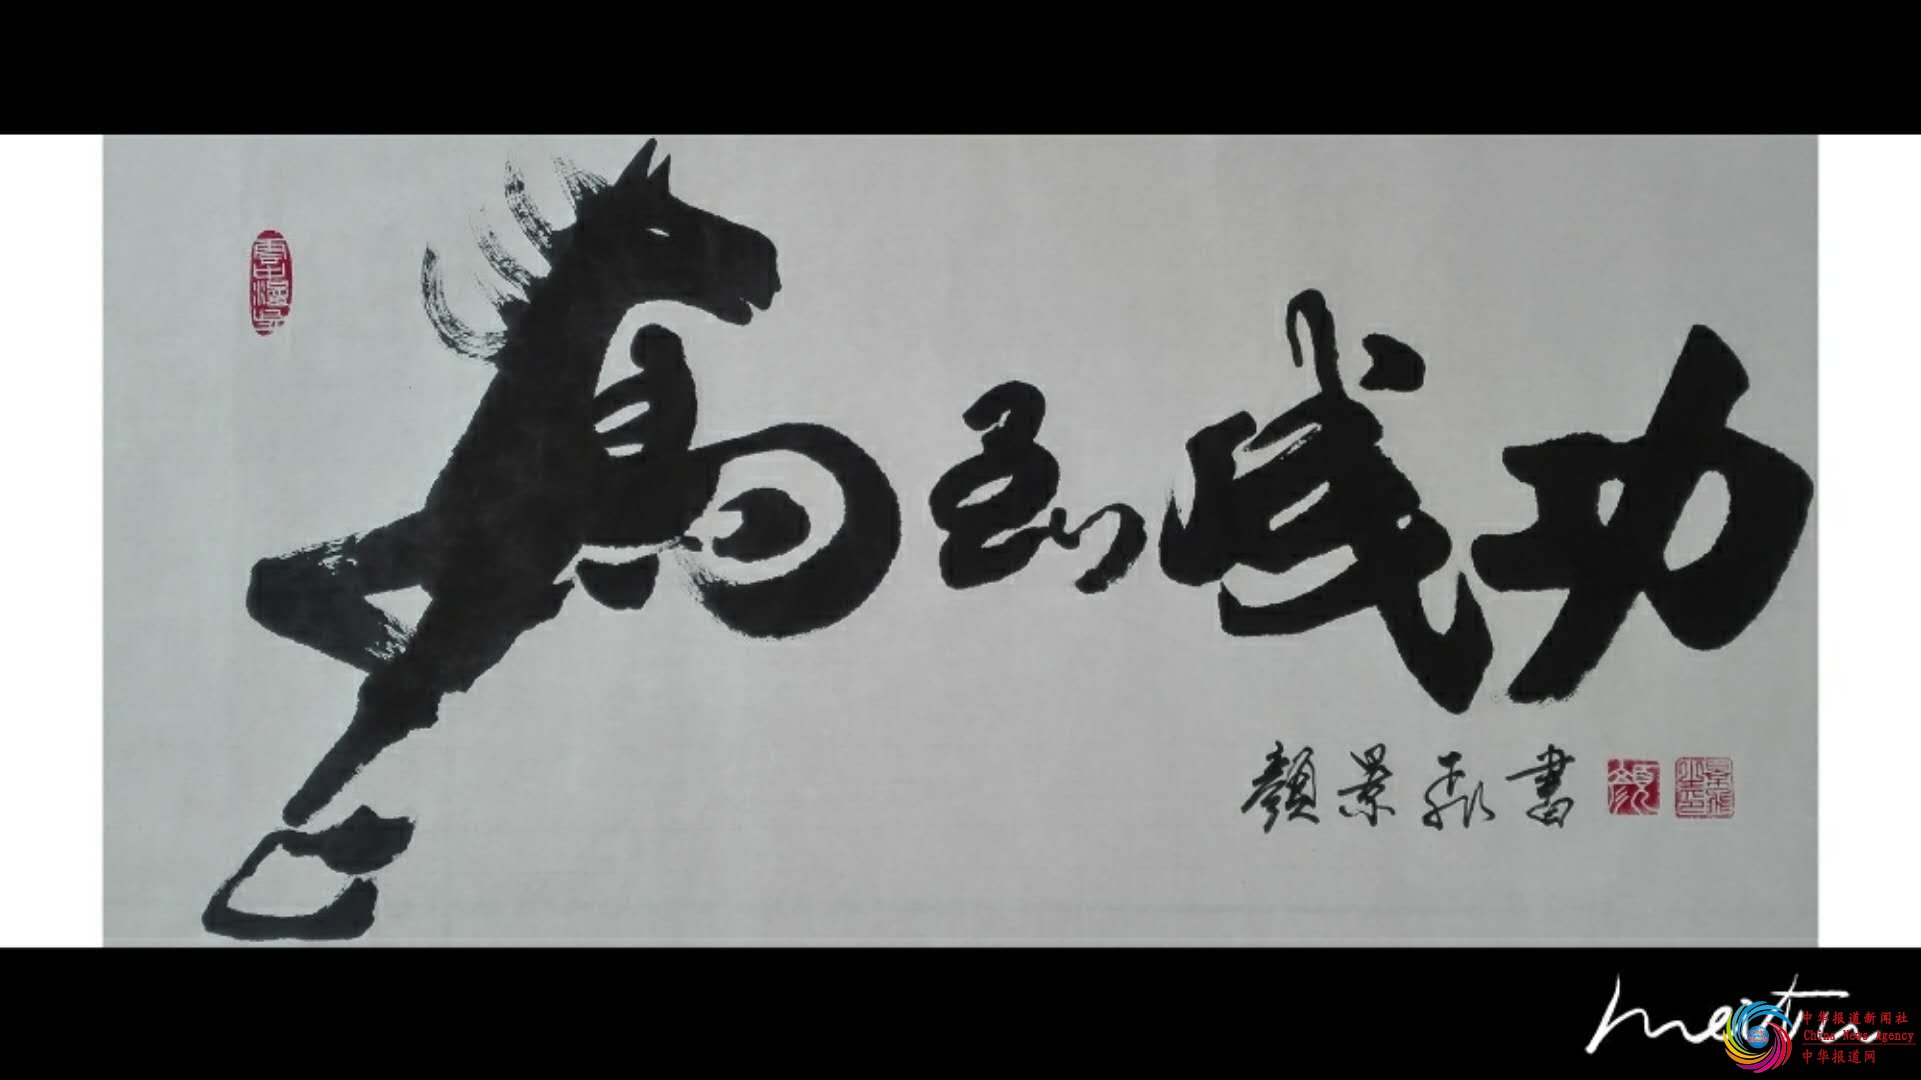 馬到成功
顏景飛書
meitu
中华报道新闻社
China News Agency
中华报道网